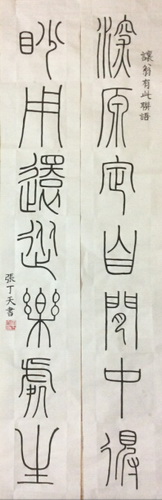 深原定自閒中得
讓翁有此聯語
眇用還從樂處生
張丁天書